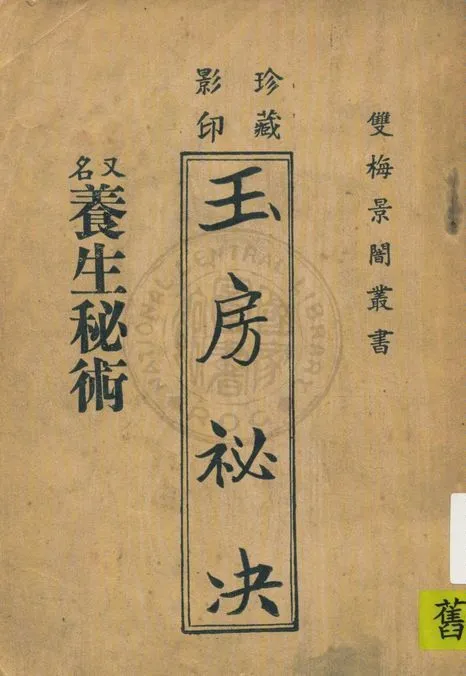 雙梅景闇叢書
珍藏
影印
玉房祕決
又名
養生秘術
NATIONAL CENTRAL LIBRARY
舊